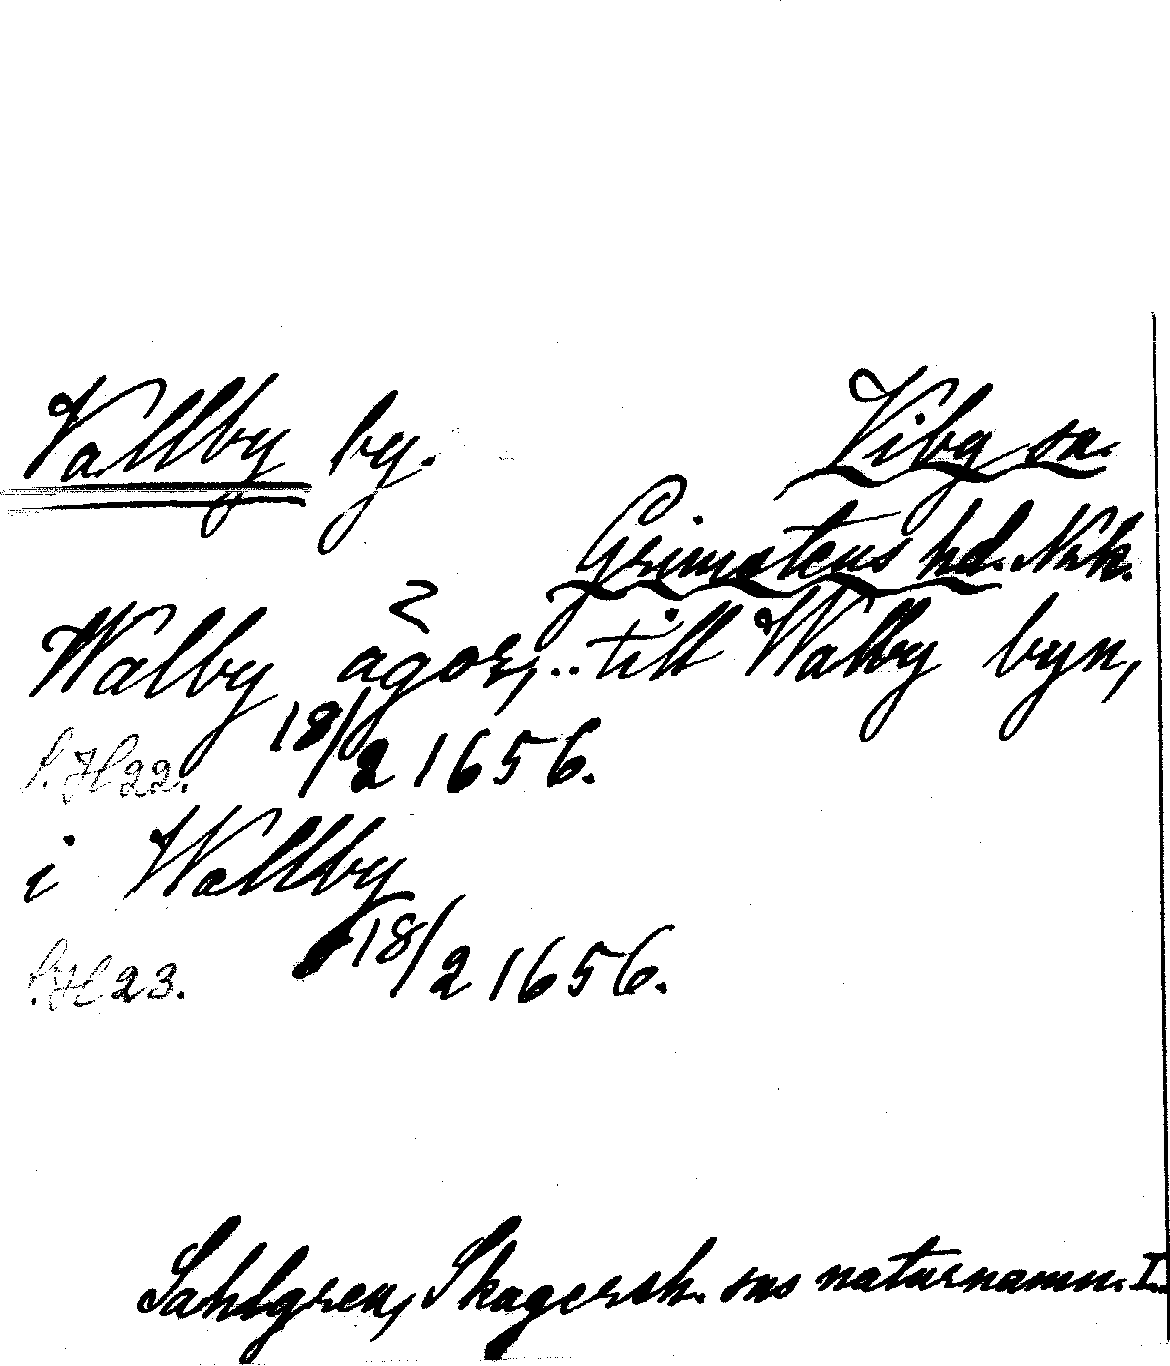 Vallby by. Viby sn.
Grimstens hd. Nrk.
Walby ägor, .. till Walby byn,
S. H 22. 18/2 1656.
i Wallby
S. H 23. 18/2 1656.
Sahlgren, Skagersh. sns naturnamn. I.